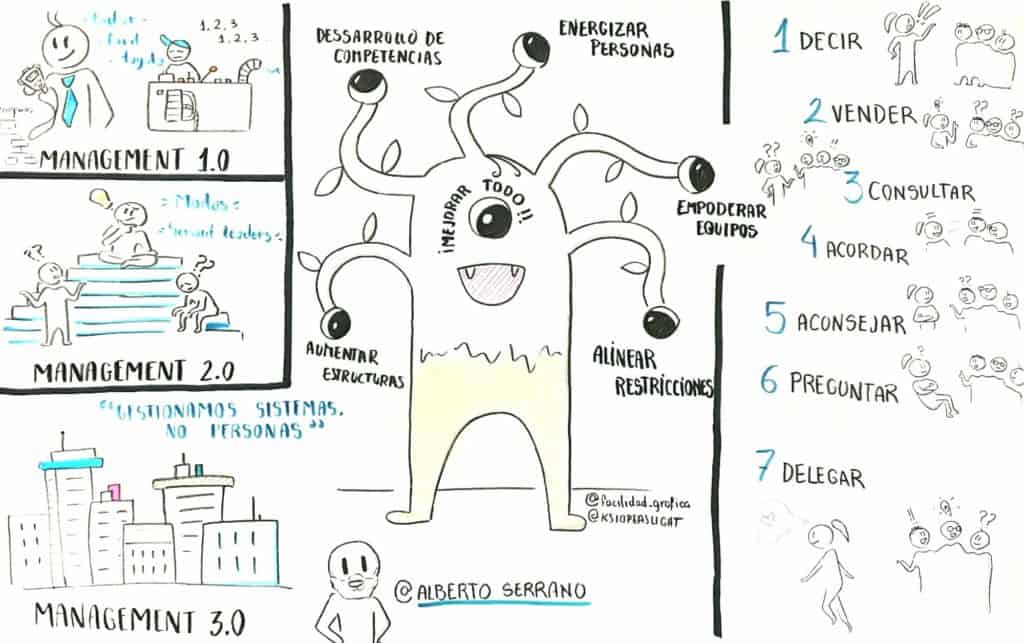 1,2,3
1,2,3...
MANAGEMENT 1.0
= Modas =
= Servant leaders =
MANAGEMENT 2.0
"GESTIONAMOS SISTEMAS,
NO PERSONAS"
MANAGEMENT 3.0
DESSARROLLO DE
COMPETENCIAS
ENERGIZAR
PERSONAS
¡MEJORAR TODO!!
EMPODERAR
EQUIPOS
AUMENTAR
ESTRUCTURAS
ALINEAR
RESTRICCIONES
@facilidad.grafica
@ALBERTO SERRANO
1 DECIR
2 VENDER
3 CONSULTAR
4 ACORDAR
5 ACONSEJAR
6 PREGUNTAR
7 DELEGAR